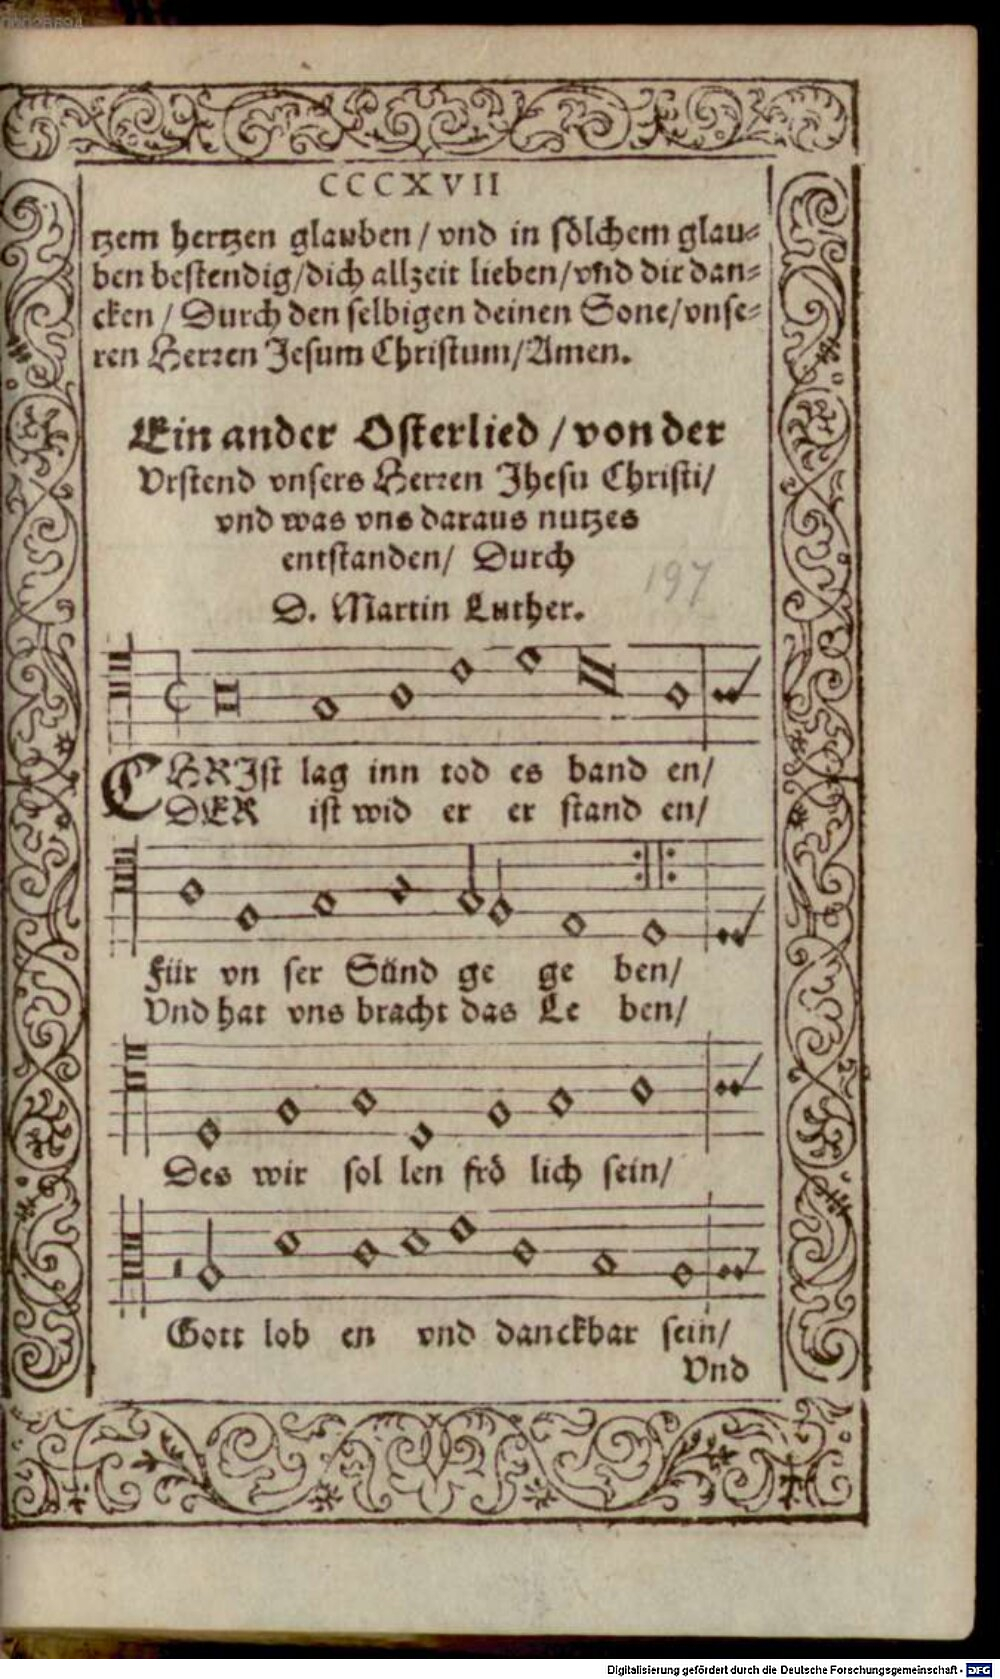 00026694
CCCXVII
tzem hertzen glauben / vnd in sölchem glau-
ben bestendig / dich allzeit lieben / vnd dir dan-
cken / Durch den selbigen deinen Sone / vnse-
ren Herren Jesum Christum / Amen.
Ein ander Osterlied / von der
Vrstend vnsers Herren Jhesu Christi /
vnd was vns daraus nutzes
entstanden / Durch
197
D. Martin Luther.
CHRIst lag inn tod es band en /
DER ist wid er er stand en /
Für vn ser Sünd ge ge ben /
Vnd hat vns bracht das Le ben /
Des wir sol len frö lich sein /
Gott lob en vnd danckbar sein /
Vnd
Digitalisierung gefördert durch die Deutsche Forschungsgemeinschaft - DFG